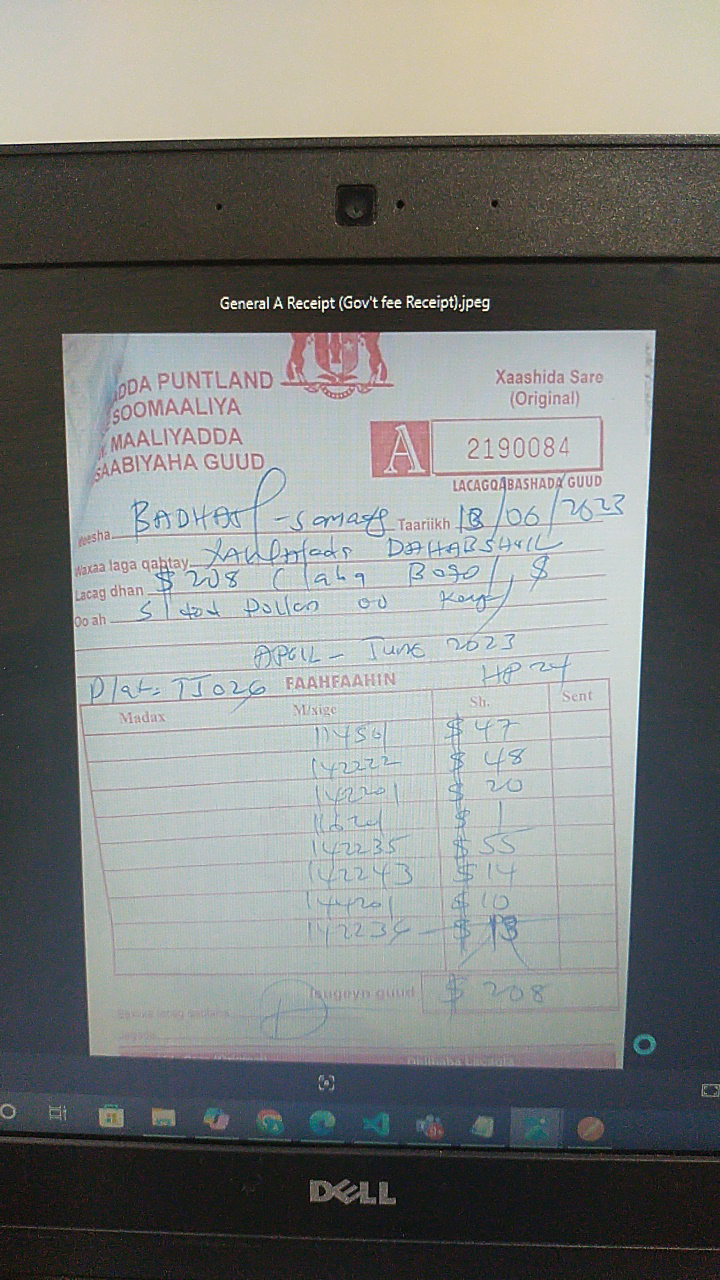 General A Receipt (Gov't fee Receipt).jpeg
ADDA PUNTLAND
SOOMAALIYA
MAALIYADDA
SAABIYAHA GUUD
Xaashida Sare
(Original)
A 2190084
LACAGQABASHADA GUUD
eesha BADHAN - Sanaag Taariikh 18/06/2023
Waxaa laga qabtay DAHABSHIIL
Lacag dhan $ 208 ( laba Boqol $
Oo ah
APRIL - June 2023
Plat: TJ026 FAAHFAAHIN HP 24
Madax M/xige Sh. Sent
11451 $ 47
142222 $ 48
142201 $ 20
$ 1
142235 $ 55
142243 $ 14
144201 $ 10
142236 - $ 13
Isugeyn guud $ 208
DELL